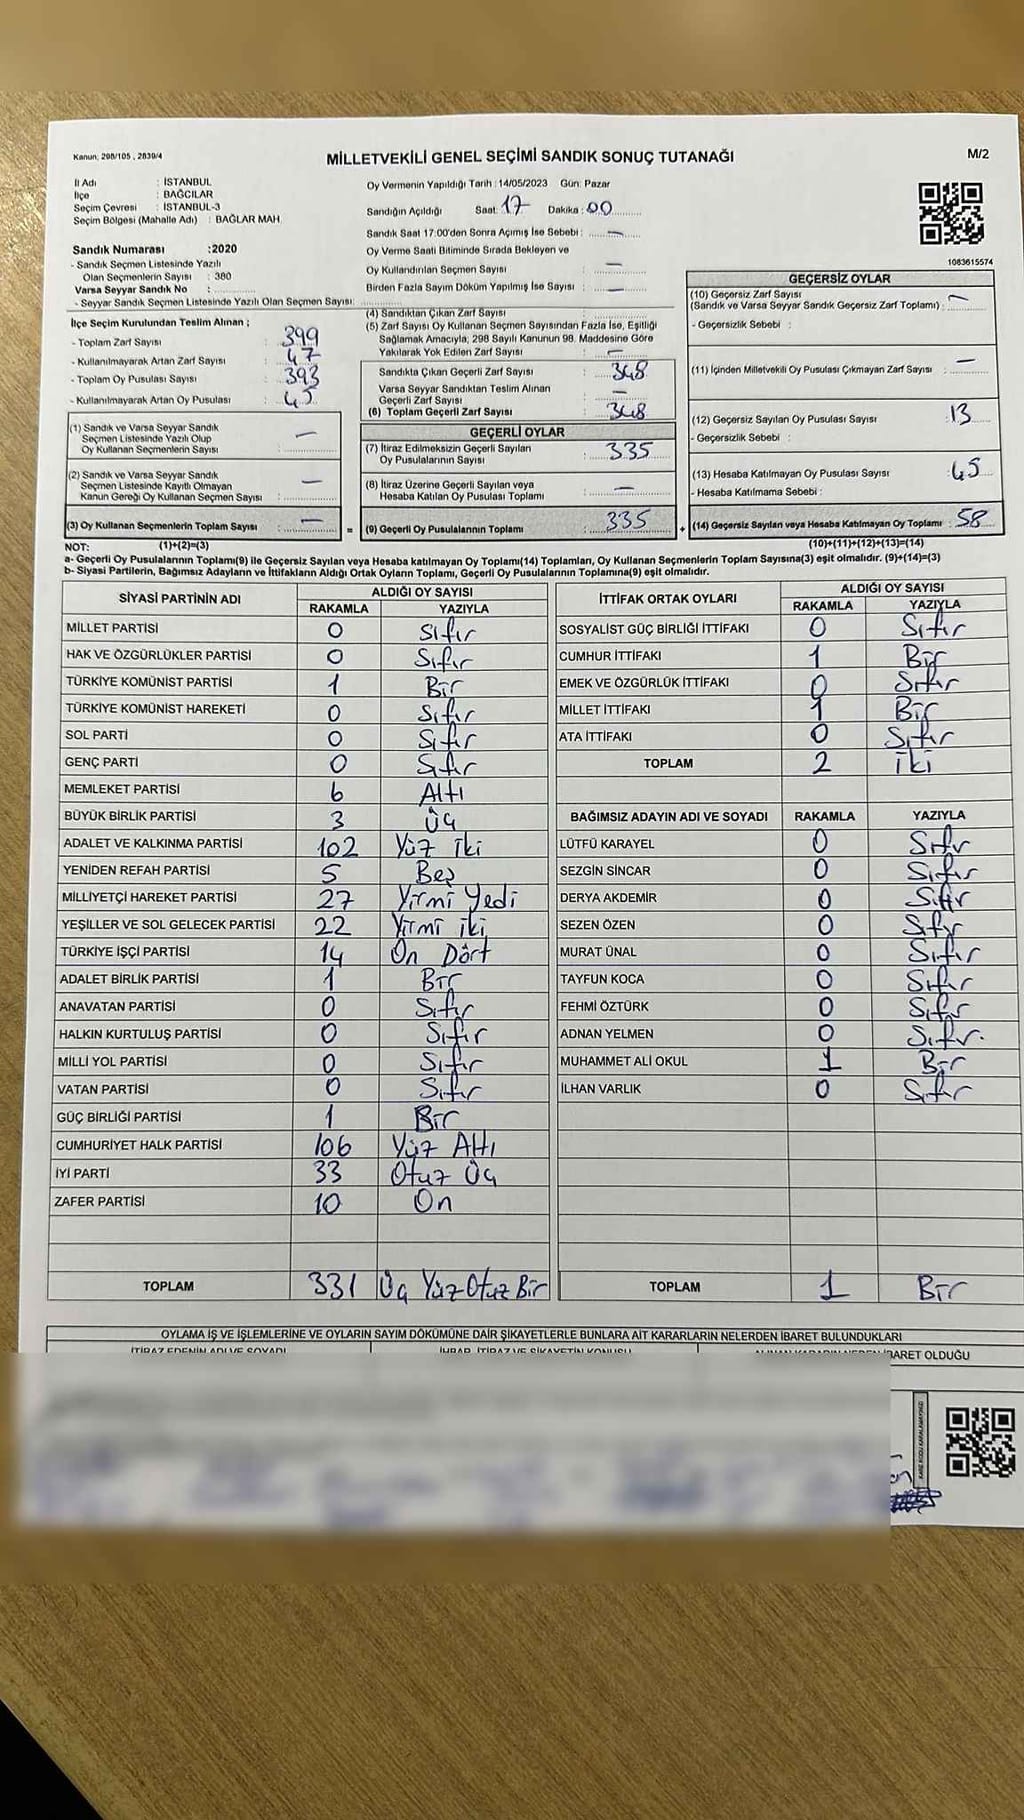 Kanun; 298/105 , 2839/4
MİLLETVEKİLİ GENEL SEÇİMİ SANDIK SONUÇ TUTANAĞI
M/2
İl Adı : İSTANBUL
İlçe : BAĞCILAR
Seçim Çevresi : İSTANBUL-3
Seçim Bölgesi (Mahalle Adı) : BAĞLAR MAH.
Sandık Numarası :2020
- Sandık Seçmen Listesinde Yazılı
Olan Seçmenlerin Sayısı : 380
Varsa Seyyar Sandık No :
- Seyyar Sandık Seçmen Listesinde Yazılı Olan Seçmen Sayısı:
Oy Vermenin Yapıldığı Tarih :14/05/2023 Gün: Pazar
Sandığın Açıldığı Saat: 17 Dakika: 00
Sandık Saat 17:00'den Sonra Açılmış İse Sebebi : —
Oy Verme Saati Bitiminde Sırada Bekleyen ve
Oy Kullandırılan Seçmen Sayısı : —
Birden Fazla Sayım Döküm Yapılmış İse Sayısı : —
1083615574
İlçe Seçim Kurulundan Teslim Alınan ;
- Toplam Zarf Sayısı : 399
- Kullanılmayarak Artan Zarf Sayısı : 47
- Toplam Oy Pusulası Sayısı : 393
- Kullanılmayarak Artan Oy Pusulası : 45
(1) Sandık ve Varsa Seyyar Sandık
Seçmen Listesinde Yazılı Olup
Oy Kullanan Seçmenlerin Sayısı : —
(2) Sandık ve Varsa Seyyar Sandık
Seçmen Listesinde Kayıtlı Olmayan
Kanun Gereği Oy Kullanan Seçmen Sayısı : —
(3) Oy Kullanan Seçmenlerin Toplam Sayısı : —
(4) Sandıktan Çıkan Zarf Sayısı :
(5) Zarf Sayısı Oy Kullanan Seçmen Sayısından Fazla İse, Eşitliği
Sağlamak Amacıyla, 298 Sayılı Kanunun 98. Maddesine Göre
Yakılarak Yok Edilen Zarf Sayısı : —
Sandıkta Çıkan Geçerli Zarf Sayısı : 348
Varsa Seyyar Sandıktan Teslim Alınan
Geçerli Zarf Sayısı : —
(6) Toplam Geçerli Zarf Sayısı : 348
GEÇERLİ OYLAR
(7) İtiraz Edilmeksizin Geçerli Sayılan
Oy Pusulalarının Sayısı : 335
(8) İtiraz Üzerine Geçerli Sayılan veya
Hesaba Katılan Oy Pusulası Toplamı : —
= (9) Geçerli Oy Pusulalarının Toplamı : 335
GEÇERSİZ OYLAR
(10) Geçersiz Zarf Sayısı
(Sandık ve Varsa Seyyar Sandık Geçersiz Zarf Toplamı) : —
- Geçersizlik Sebebi :
(11) İçinden Milletvekili Oy Pusulası Çıkmayan Zarf Sayısı : —
(12) Geçersiz Sayılan Oy Pusulası Sayısı : 13
- Geçersizlik Sebebi :
(13) Hesaba Katılmayan Oy Pusulası Sayısı : 45
- Hesaba Katılmama Sebebi :
+ (14) Geçersiz Sayılan veya Hesaba Katılmayan Oy Toplamı : 58
NOT: (1)+(2)=(3)
(10)+(11)+(12)+(13)=(14)
a- Geçerli Oy Pusulalarının Toplamı(9) ile Geçersiz Sayılan veya Hesaba katılmayan Oy Toplamı(14) Toplamları, Oy Kullanan Seçmenlerin Toplam Sayısına(3) eşit olmalıdır. (9)+(14)=(3)
b- Siyasi Partilerin, Bağımsız Adayların ve İttifakların Aldığı Ortak Oyların Toplamı, Geçerli Oy Pusulalarının Toplamına(9) eşit olmalıdır.
SİYASİ PARTİNİN ADI ALDIĞI OY SAYISI
RAKAMLA YAZIYLA
MİLLET PARTİSİ 0 Sıfır
HAK VE ÖZGÜRLÜKLER PARTİSİ 0 Sıfır
TÜRKİYE KOMÜNİST PARTİSİ 1 Bir
TÜRKİYE KOMÜNİST HAREKETİ 0 Sıfır
SOL PARTİ 0 Sıfır
GENÇ PARTİ 0 Sıfır
MEMLEKET PARTİSİ 6 Altı
BÜYÜK BİRLİK PARTİSİ 3 Üç
ADALET VE KALKINMA PARTİSİ 102 Yüz iki
YENİDEN REFAH PARTİSİ 5 Beş
MİLLİYETÇİ HAREKET PARTİSİ 27 Yirmi Yedi
YEŞİLLER VE SOL GELECEK PARTİSİ 22 Yirmi iki
TÜRKİYE İŞÇİ PARTİSİ 14 On Dört
ADALET BİRLİK PARTİSİ 1 Bir
ANAVATAN PARTİSİ 0 Sıfır
HALKIN KURTULUŞ PARTİSİ 0 Sıfır
MİLLİ YOL PARTİSİ 0 Sıfır
VATAN PARTİSİ 0 Sıfır
GÜÇ BİRLİĞİ PARTİSİ 1 Bir
CUMHURİYET HALK PARTİSİ 106 Yüz Altı
İYİ PARTİ 33 Otuz Üç
ZAFER PARTİSİ 10 On
TOPLAM 331 Üç Yüz Otuz Bir
İTTİFAK ORTAK OYLARI ALDIĞI OY SAYISI
RAKAMLA YAZIYLA
SOSYALİST GÜÇ BİRLİĞİ İTTİFAKI 0 Sıfır
CUMHUR İTTİFAKI 1 Bir
EMEK VE ÖZGÜRLÜK İTTİFAKI 0 Sıfır
MİLLET İTTİFAKI 1 Bir
ATA İTTİFAKI 0 Sıfır
TOPLAM 2 iki
BAĞIMSIZ ADAYIN ADI VE SOYADI RAKAMLA YAZIYLA
LÜTFÜ KARAYEL 0 Sıfır
SEZGİN SİNCAR 0 Sıfır
DERYA AKDEMİR 0 Sıfır
SEZEN ÖZEN 0 Sıfır
MURAT ÜNAL 0 Sıfır
TAYFUN KOCA 0 Sıfır
FEHMİ ÖZTÜRK 0 Sıfır
ADNAN YELMEN 0 Sıfır.
MUHAMMET ALİ OKUL 1 Bir
İLHAN VARLIK 0 Sıfır
TOPLAM 1 Bir
OYLAMA İŞ VE İŞLEMLERİNE VE OYLARIN SAYIM DÖKÜMÜNE DAİR ŞİKAYETLERLE BUNLARA AİT KARARLARIN NELERDEN İBARET BULUNDUKLARI
İTİRAZ EDENİN ADI VE SOYADI İHBAR, İTİRAZ VE ŞİKAYETİN KONUSU İBARET OLDUĞU
KARE KODU KARALAMAYINIZ